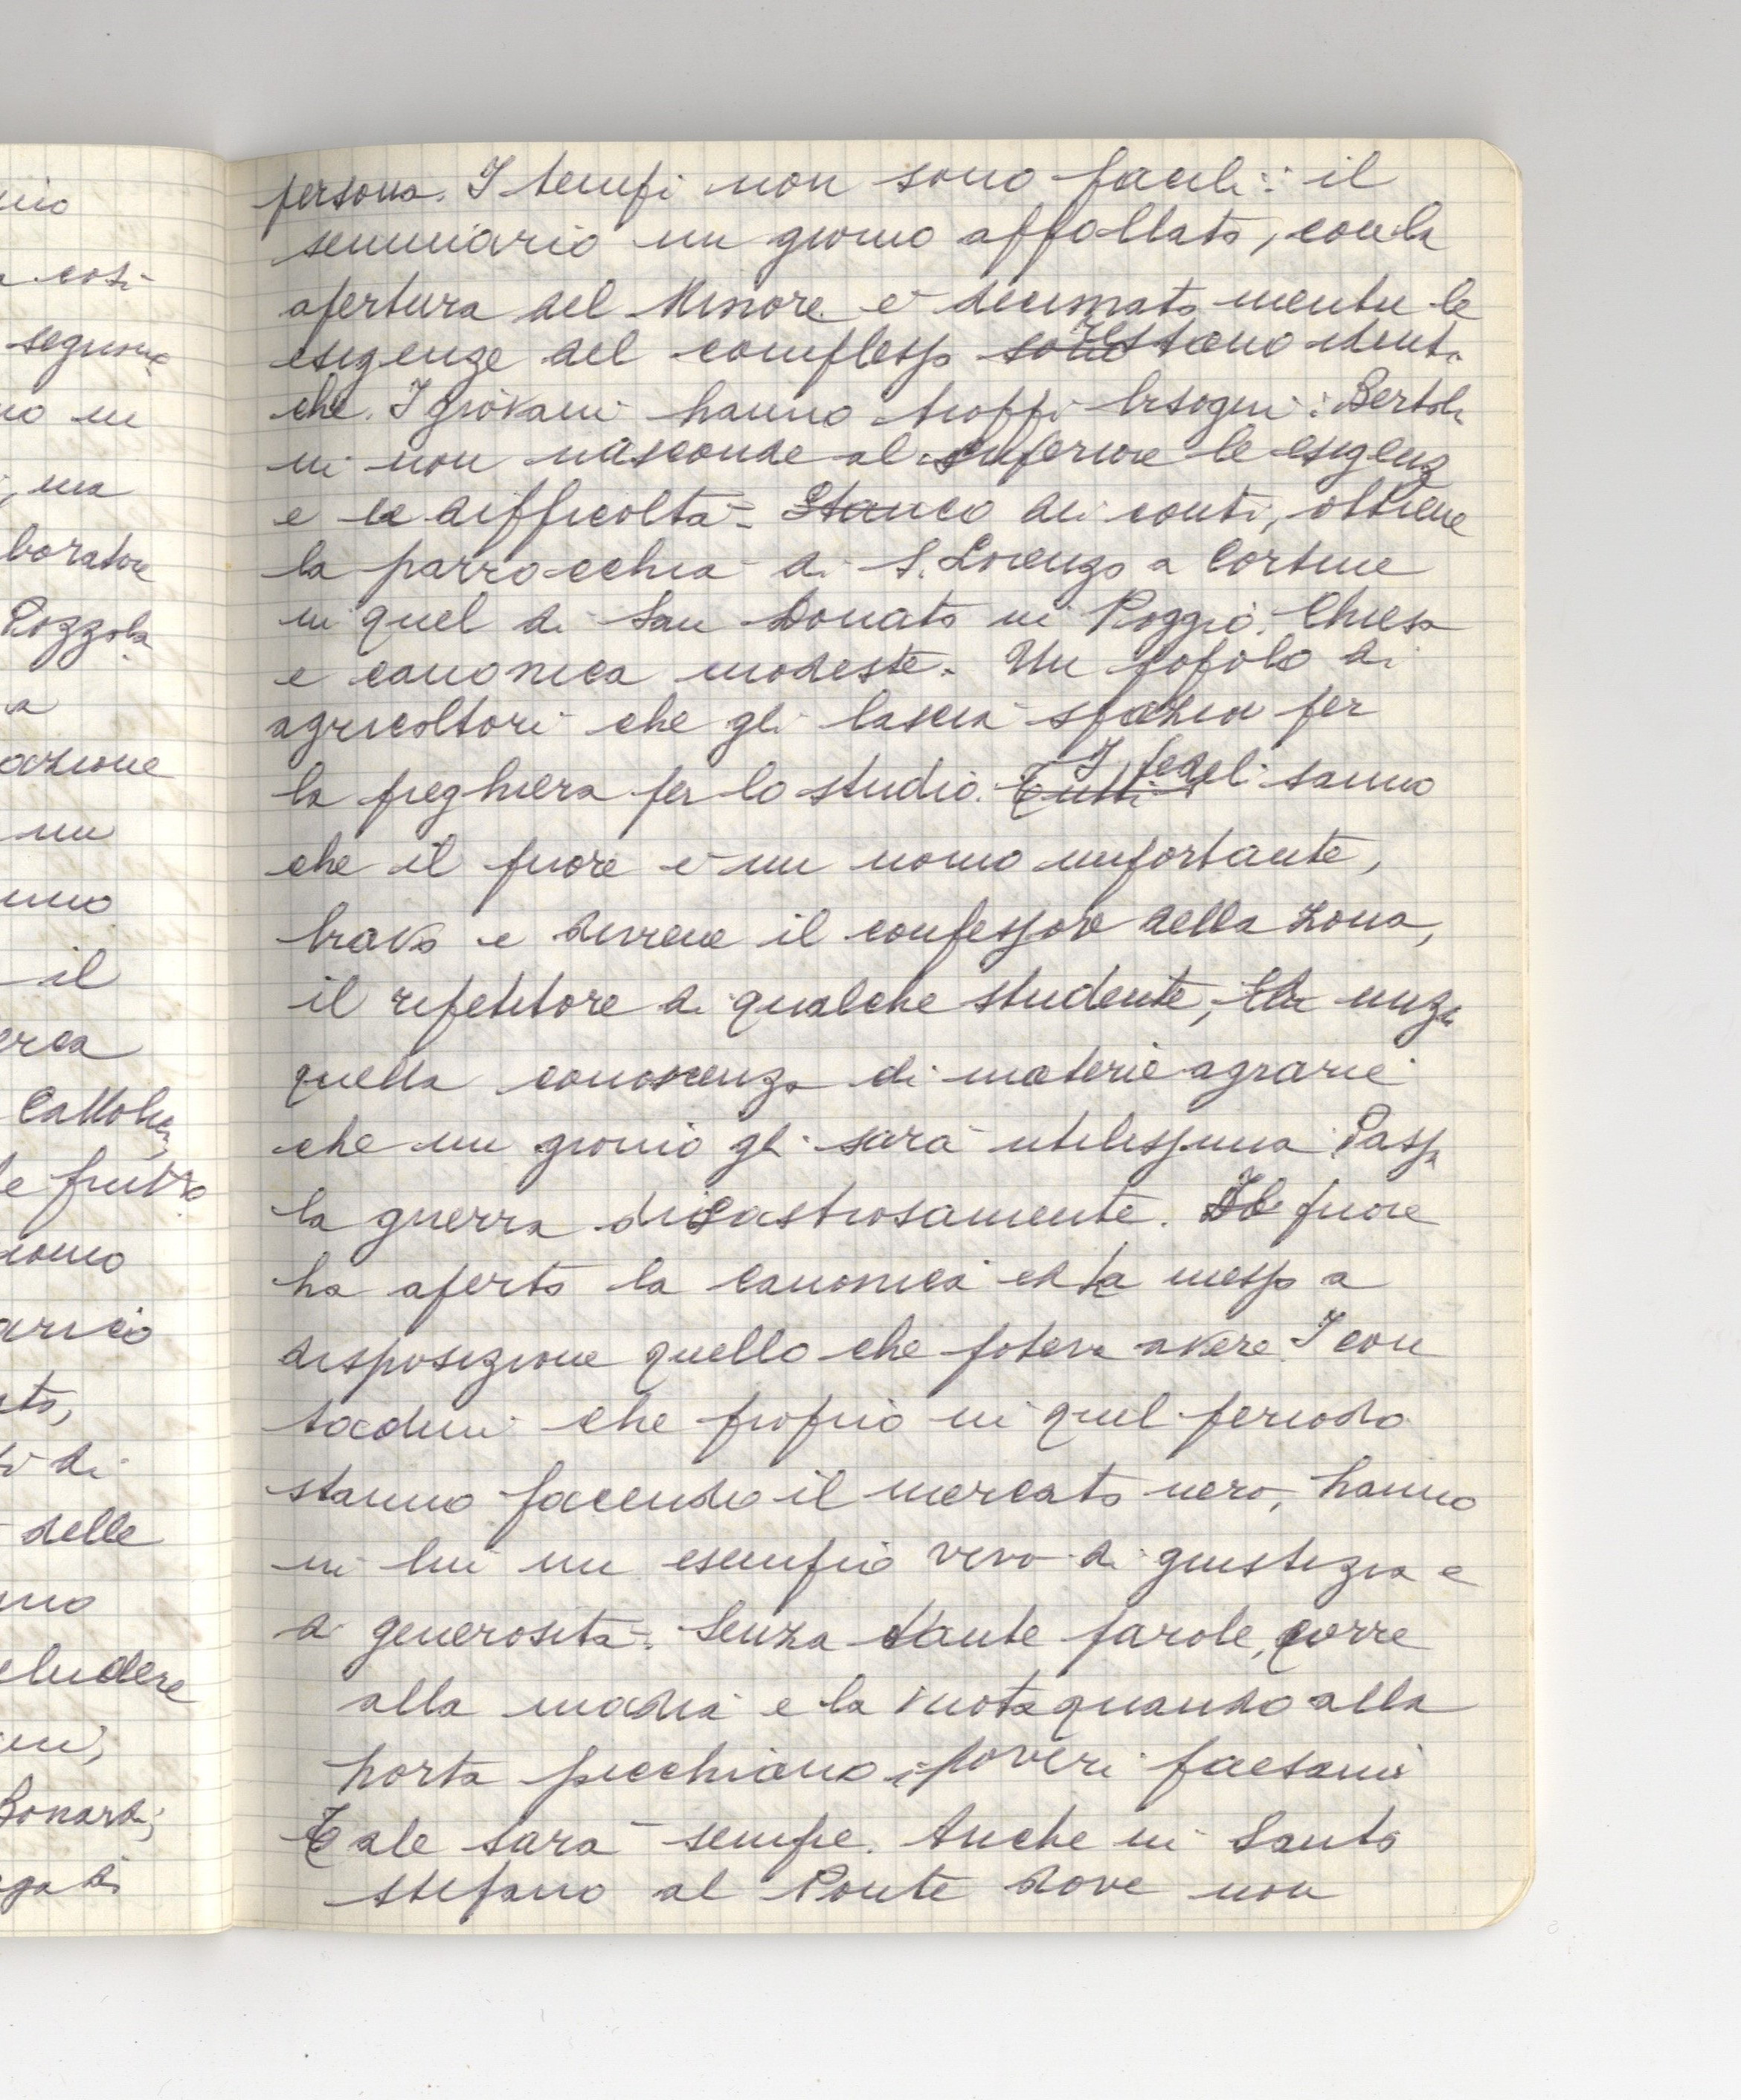 persona. I tempi non sono facili: il
seminario un giorno affollato, con la
apertura del Minore è decimato mentre le
esigenze del complesso sono restano identi
che. I giovani hanno troppi bisogni: Bertoli
ni non nasconde al superiore le esigenz
e le difficoltà. Stanco dei conti, ottiene
la parrocchia di S. Lorenzo a Cortine
in quel di San Donato in Poggio. Chiesa
e canonica modeste. Un popolo di
agricoltori che gli lascia spazio per
la preghiera per lo studio. Tutti I fedeli sanno
che il priore è un uomo importante,
bravo e diviene il confessore della zona,
il ripetitore di qualche studente, inizia
quella conoscenza di materie agrarie
che un giorno gli sarà utilissima. Passa
la guerra disastrosamente. Il priore
ha aperto la canonica ed ha messo a
disposizione quello che poteva avere. I con
tadini che proprio in quel periodo
stanno facendo il mercato nero, hanno
in lui un esempio vivo di giustizia e
di generosità. Senza tante parole, corre
alla madia e la vuota quando alla
porta picchiano i poveri paesani
Tale sarà sempre. Anche in Santo
Stefano al Ponte dove non
mio
così
segnione
no in
, ma
boratore
Pozzola
a
azione
un
il
erca
Cattolica
e frutto
uomo
ato,
di
delle
cludere
Bonardi,